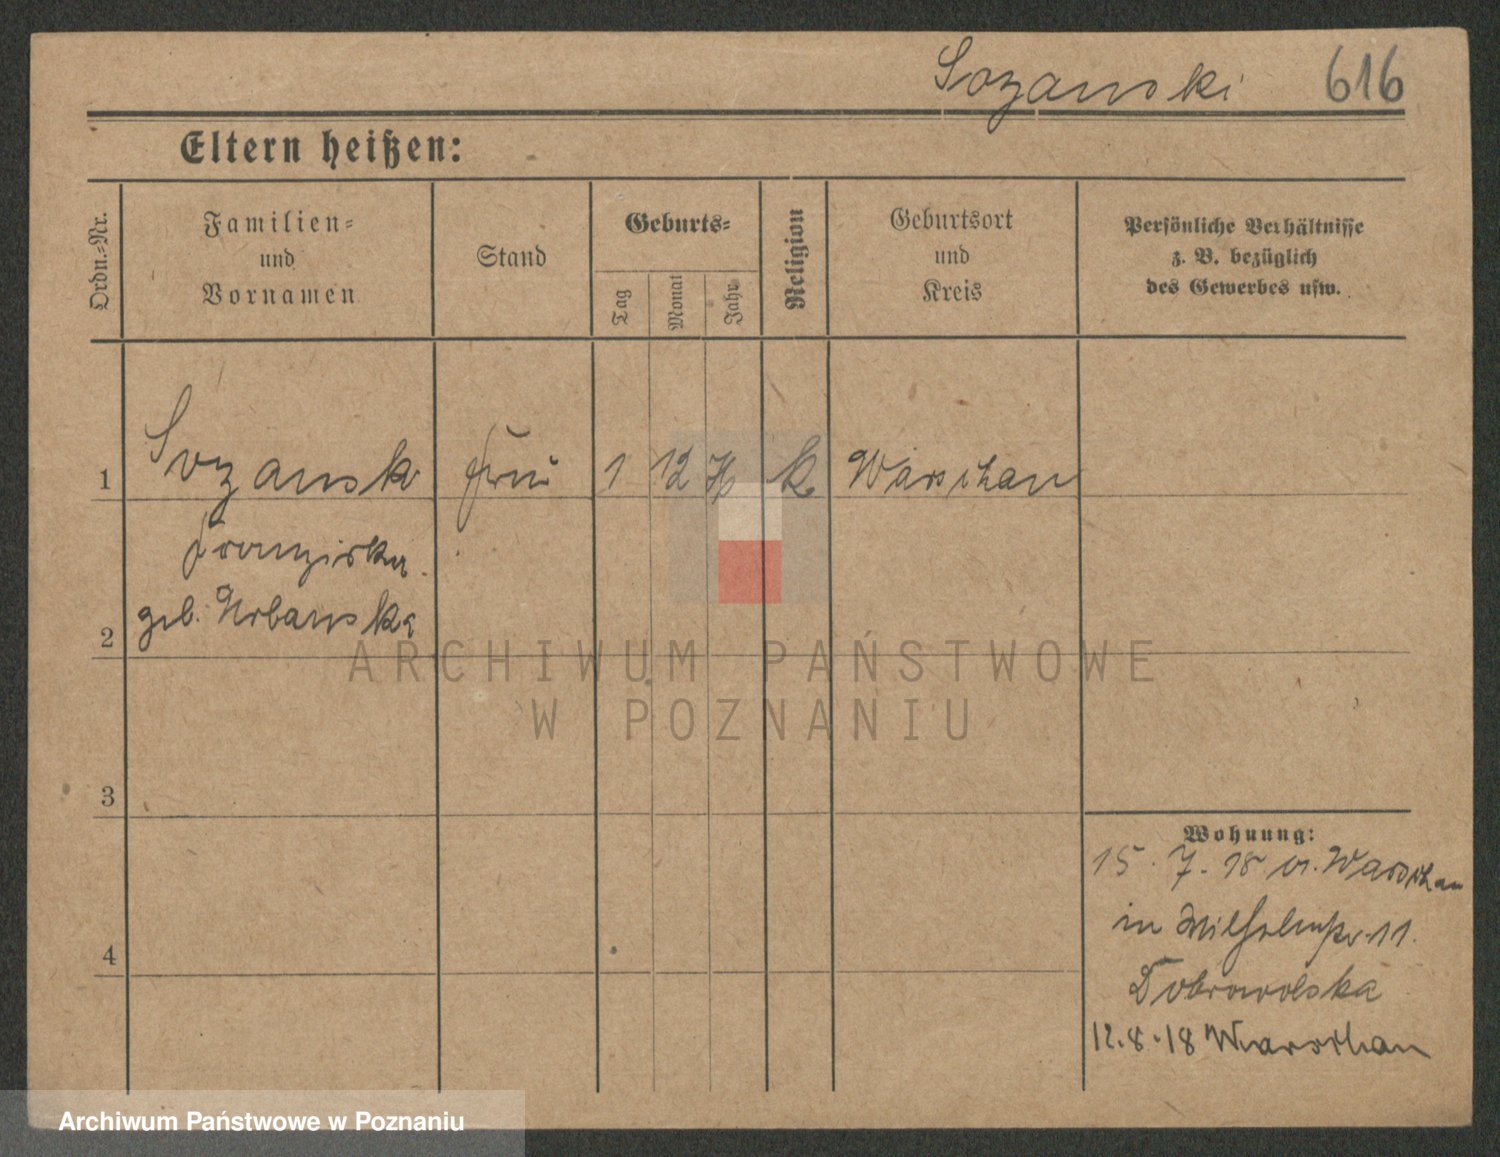 Sozanski 616
Eltern heißen:
Ordn.-Nr.
Familien-
und
Vornamen
Stand
Geburts-
Tag
Monat
Jahr
Religion
Geburtsort
und
Kreis
Persönliche Verhältnisse
z. B. bezüglich
des Gewerbes usw.
1 Sozansk 1 12 k. Warschau
Franziska
geb. Urbanska
2
3
4
Wohnung:
15. 7. 18 v. Warschau
in Wilhelmstr. 11.
Dobrowolska
12.8.18 Warschau
ARCHIWUM PAŃSTWOWE
W POZNANIU
Archiwum Państwowe w Poznaniu